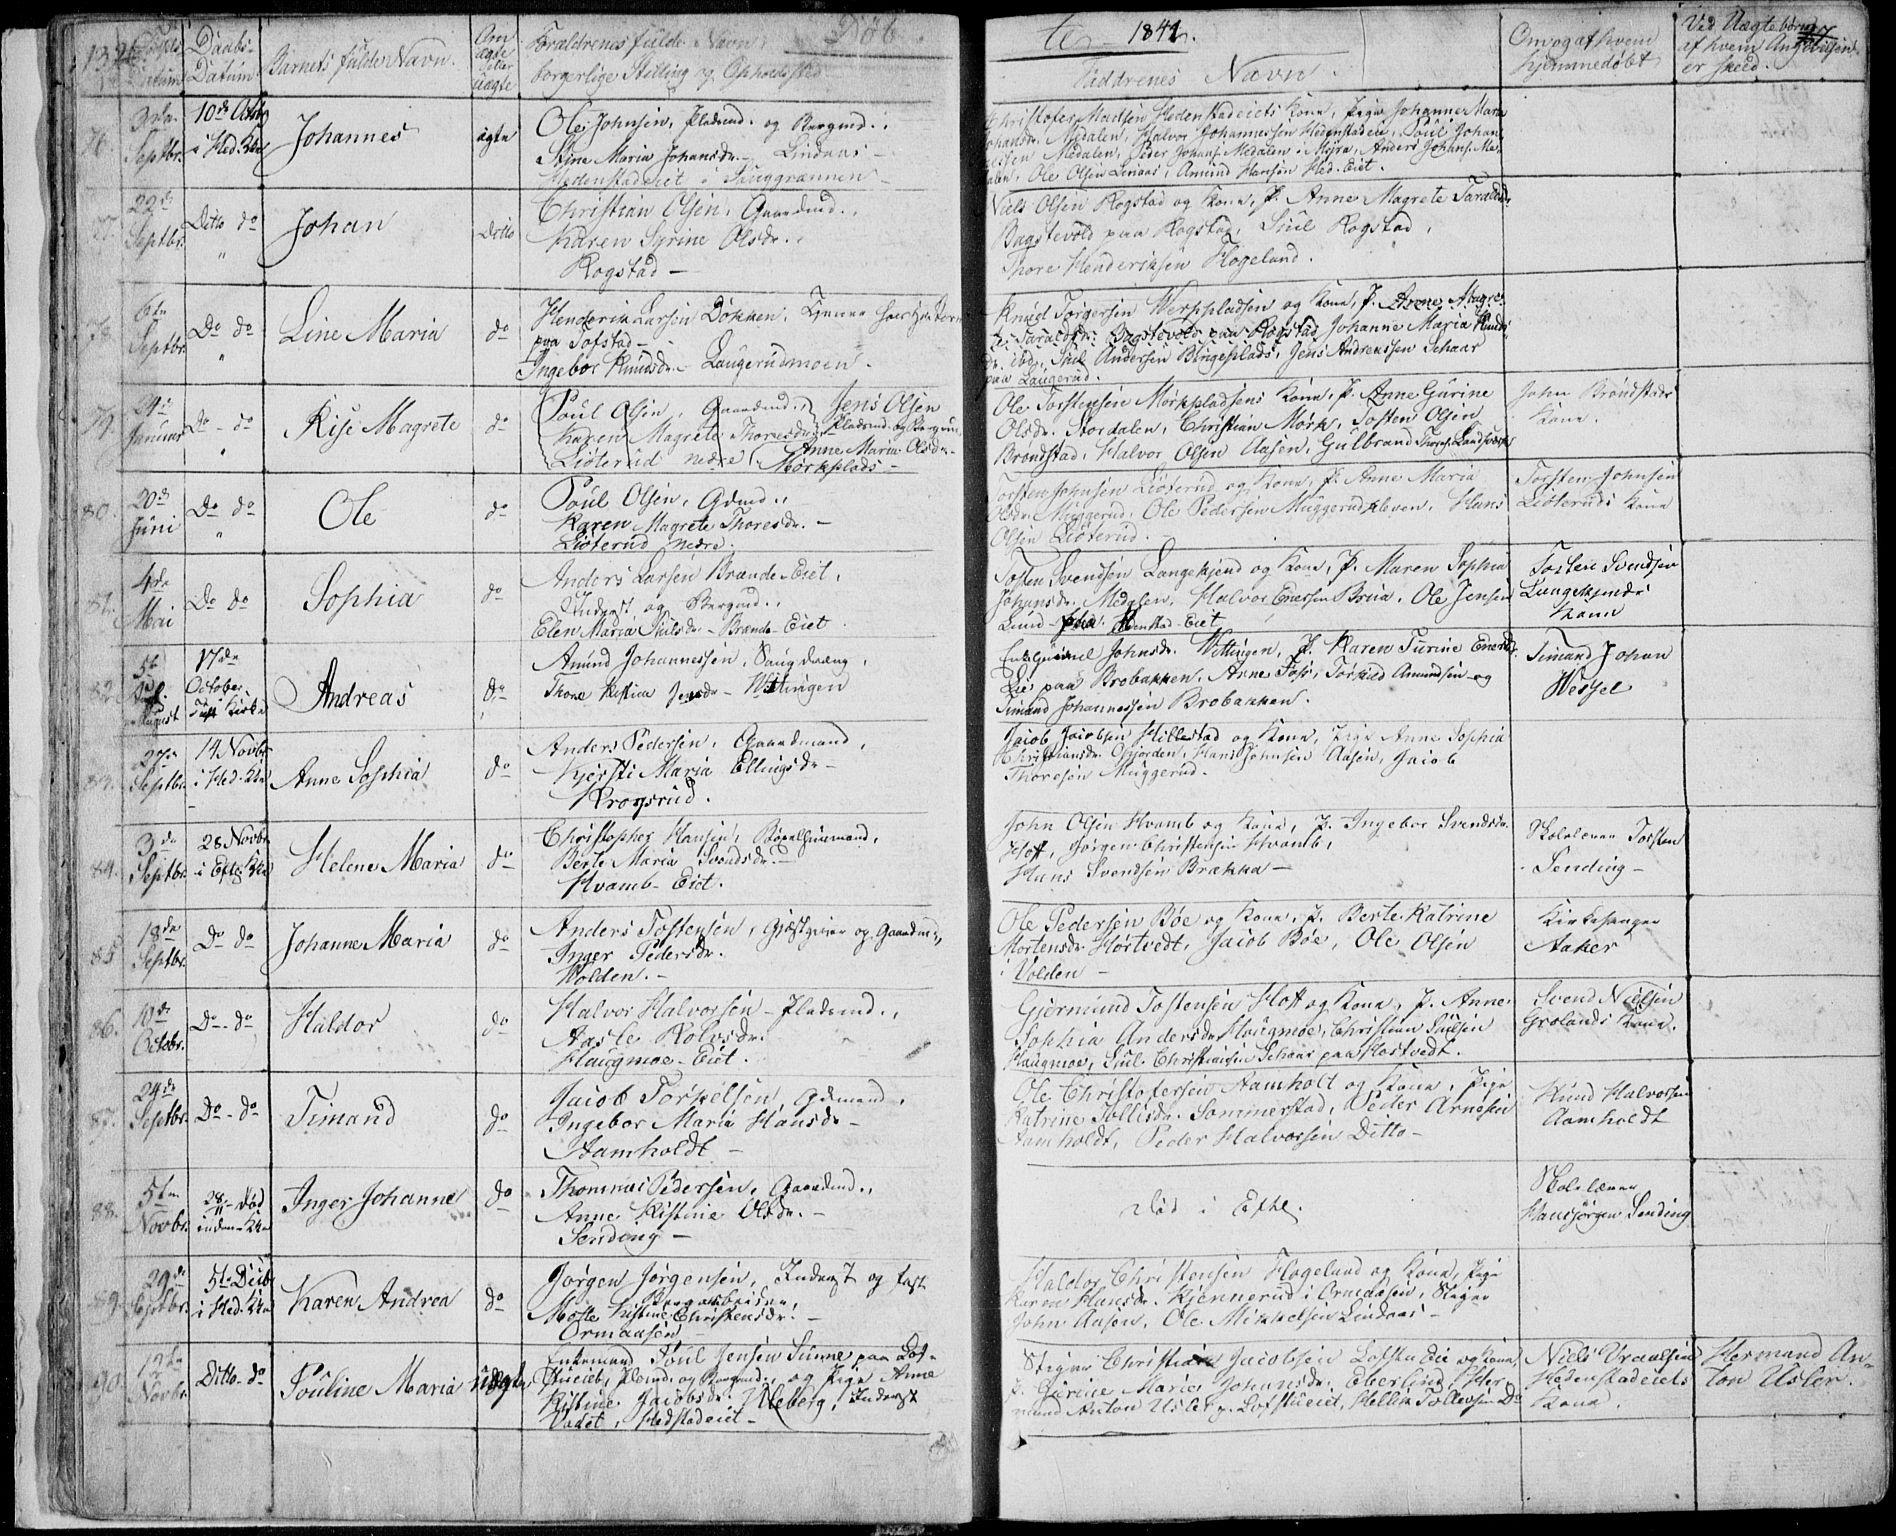 Døb
te 1841.
Daabs-
Datum
Barnets fulde Navn.
Om
ægte
eller
uægte
Forældrenes fulde Navn,
borgerlige Stilling og Opholdssted
Faddrenes Navn.
Om og af hvem
hjemmedøbt
Ved Uægtebørn
af hvem Angivelsen
er skeed.
76.
Septbr.
10de Octbr
i Hed. Kke
Johannes
ægte
Ole Johnsen, Pladsmd. og Bergmd.,
Stine Maria Johansdr. - Lindaas -
Hedenstadeiet i
Christofer Madsen Hedenstadeiets Kone, Pige Johanne Maria
Johansdr. Medalen, Halvor Johannessen Hedenstadeie, Poul Johan-
sen Medalen, Peder Johans. Medalen i Myra, Anders Johans. Me-
dalen, Ole Olsen Lindaas, Amund Hansen Hed. Eiet.
77.
22de
Septbr.
Ditto do
Johan
Ditto
Christian Olsen, Gaardmd.,
Karen Syrine Olsdr.,
Rogstad -
Niels Olsen Rogstad og Kone, P. Anne Magrete Taraldsdr.
Bagstevold paa Rogstad, Rogstad,
Thore Henderiksen Hogeland.
78
6te
Septbr.
Do do
Line Maria
do
Henderik Larsen Dokken,
paa Tofstad -
Ingebor Knudsdr. - Laugerudmoen.
Knud Torgersen Werpladsen og Kone, P. Anne Magre-
te Taraldsdr. Bagstevold paa Rogstad, Johanne Maria Knuds-
dr. ibd., Andersen Bingeplads, Jens Andreassen Schaar
paa Laugerud.
79.
24de
Januar
Do - do
Kise Magrete
do
Poul Olsen, Gaardmd.,
Karen Magrete Thoresdr.
Liøterud nedre
Jens Olsen
Pladsmd. og Bergmd.
Anne Maria Olsdr. -
Mørkplads -
Ole Torstensen Mørkpladsens Kone, P. Anne Gurine
Olsdr. Stordalen, Christian Mørk, Tosten Olsen
Brøndstad, Halvor Olsen Aasen, Gulbrand Thores. Landsværk
John Brøndstads
Kone.
80.
20de
Juni
Do do
Ole
do
Poul Olsen, Gdmd.,
Karen Magrete Thoresdr. -
Liøterud nedre.
Torsten Johnsen Liøterud og Kone, P. Anne Maria
Olsdr. Muggerud, Ole Pedersen Muggerudkleven, Hans
Olsen Liøterud.
Torsten Johnsen
Liøteruds Kone
81.
4de
Mai
Do do
Sophia
do
Anders Larsen Brænde-Eiet,
Inderst og Bergmd.,
Elen Maria - Brænde-Eiet.
Tosten Svendsen Langekjend og Kone, P. Maren Sophia
Johansdr. Medalen, Halvor Enersen Brua, Ole Jensen
Lund - Hedenstad-Eiet
Tosten Svendsen
Langekjends
Kone
82.
August
17de
October
Kirke
Andreas
do
Amund Johannessen,
Thone Kistine Jensdr. - Wittingen
Johnsdr. Wittingen, P. Karen Turine Enersdr.
Lie paa Brobakken, Anne Torkild Amundsen og
Timand Johannessen Brobakken.
Timand Johan
Wessel
83.
27de
Septbr.
14 Novbr.
i Hed. Kke
Anne Sophia
do
Anders Pedersen, Gaardmand,
Kjersti Maria Ellingsdr. -
Krogsrud.
Jacob Jacobsen Hillestad og Kone, Pige Anne Sophia
Christiansdr. Gjorden, Hans Johnsen Aasen, Jacob
Thoresen Muggerud.
84.
3de
Septbr.
28 Novbr.
i Efte Kke
Helene Maria
do
Christopher Hansen,
Berte Maria Svendsdr. -
Hvamb-Eiet.
John Olsen Hvamb og Kone, P. Ingebor Svendsdr.
Hoff, Jørgen Christensen Hvamb,
Hans Svendsen Brækka -
Skolelærer Torsten
Sending -
85.
18de
Septbr.
Do do
Johanne Maria
do
Anders Tostensen, Gjæstgiver og Gaardmd.,
Inger Pedersdr.
Holden. -
Ole Pedersen Bøe og Kone, P. Berte Katrine
Mortensdr. Hortvedt, Jacob Bøe, Ole Olsen
i Volden -
Kirkesanger
Aaker
86.
10de
Octobr.
Do - do
Haldor
do
Halvor Halvorsen - Pladsmd.,
Aasle Rolvsdr.
Haugmoe-Eiet.
Gjermund Tostensen Hoff og Kone, P. Anne
Sophia Andersdr. Haugmoe, Christian
Haugmoe, Christiansen Schaar paa Hostvedt.
Svend Nielsen
Grolands Kone.
87.
24de
Septbr.
Do - do
Timand
do
Jacob Torkelsen, Gdmand,
Ingebor Maria Hansdr. -
Aamholdt -
Ole Christofersen Aamholt og Kone, Pige
Katrine Tollisdr. Sommerstad, Peder Arnesen
Aamholdt, Peder Halvorsen Ditto -
Knud Halvorsen
Aamholdt
88.
5te
Novbr.
28 - død
Inger Johanne
do
Thommas Pedersen, Gaardmd.,
Anne Kistine Olsdr. -
Sending -
Død i Efte.
Skolelærer
Hans Jørgen Sending
89.
29de
Septbr.
5te Decb.
i Hed. Kke
Karen Andrea
do
Jørgen Jørgensen, Inderst og fast
Bergarbeider,
Kistine Christensdr. -
Ormaasen
Haldor Christensen Hogeland og Kone, Pige
Karen Hansdr. Kjennerud i Ormaasen, Steger
John Aasen, Ole Mikkelsen Lindaas -
90.
12te
Novbr.
Ditto do
Pouline Maria
uægte
Enkemand Poul Jensen Sunne paa Lof-
Pladsmd. og Bergmd., og Pige Anne
Kistine Jacobsdr. Ulleberg, Inderst
Vadet, Hedstadeiet -
Steger Christian Jacobsen Lofstu Eie og Kone,
P. Gurine Marie Johansdr. Eberlund, Her-
mand Anton Usler Lofstueiet, Hellik Tollevsen Do
Niels Vraalsen
Hedenstadeiets
Kone.
Hermand An-
ton Usler.